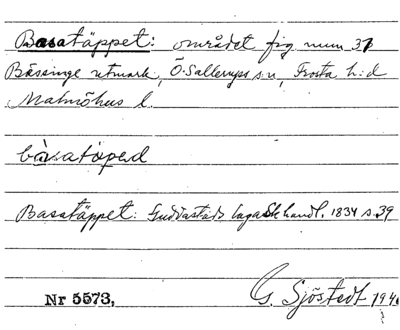 Basatäppet: området fig num 31
Bäsinge utmark, Ö. Sallerups sn, Frosta h:d
Malmöhus l.
bàsatäped
Basatäppet: laga Sk handl. 1834 s. 39
Nr 5573, G. Sjöstedt 194